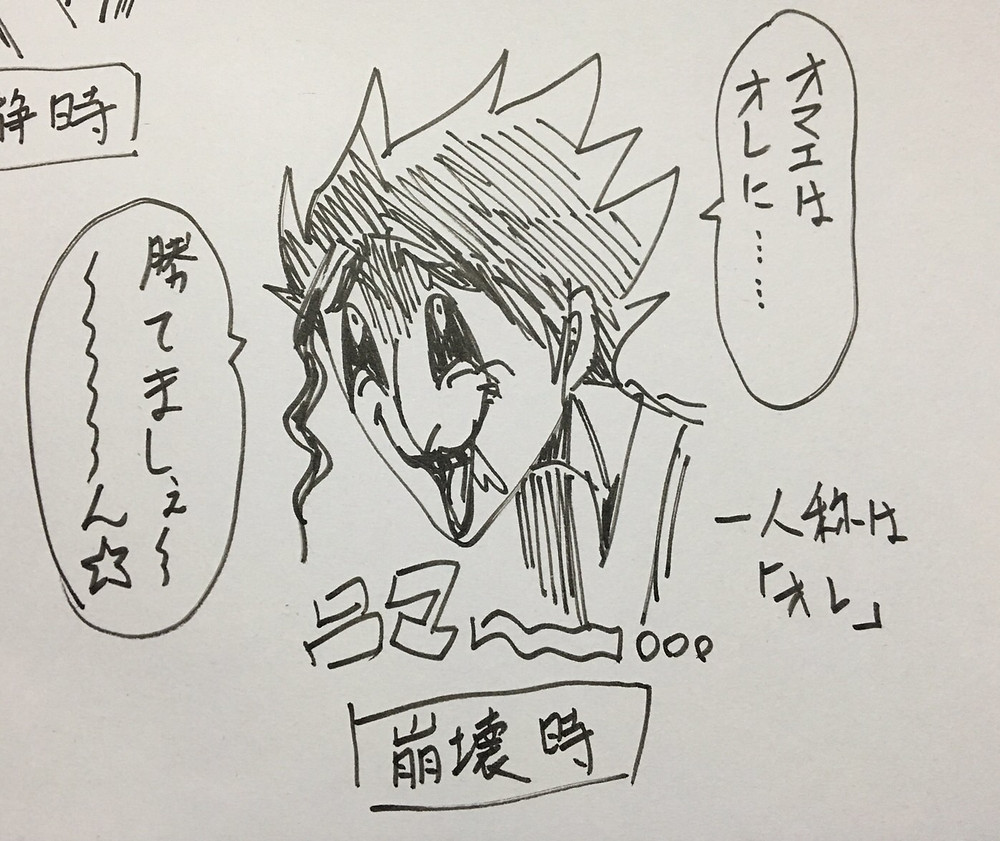 静時
オマエは
オレに……
勝てましぇ〜
〜〜〜〜〜ん☆
一人称は
「オレ」
崩壊時